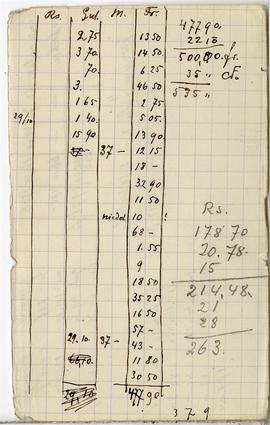 Rs. Gul. M. Fr.
2 75 13 50
3 70. 14 50
70. 6 25
3. 46 50
1 65 2 75
29/10 1 40. 5 05.
15 90 13 90
37 – 12 15
18 –
32 90
11 50
10
68 –
1. 55
9
18 50
35 25
16 50
57 –
29. 10. 37 – 43 –
11 80
30 50
477 90
477 90.
22 10
35 "
535 "
Rs.
178 70
20. 78.
15
214, 48.
21
28
263.
3 7 9